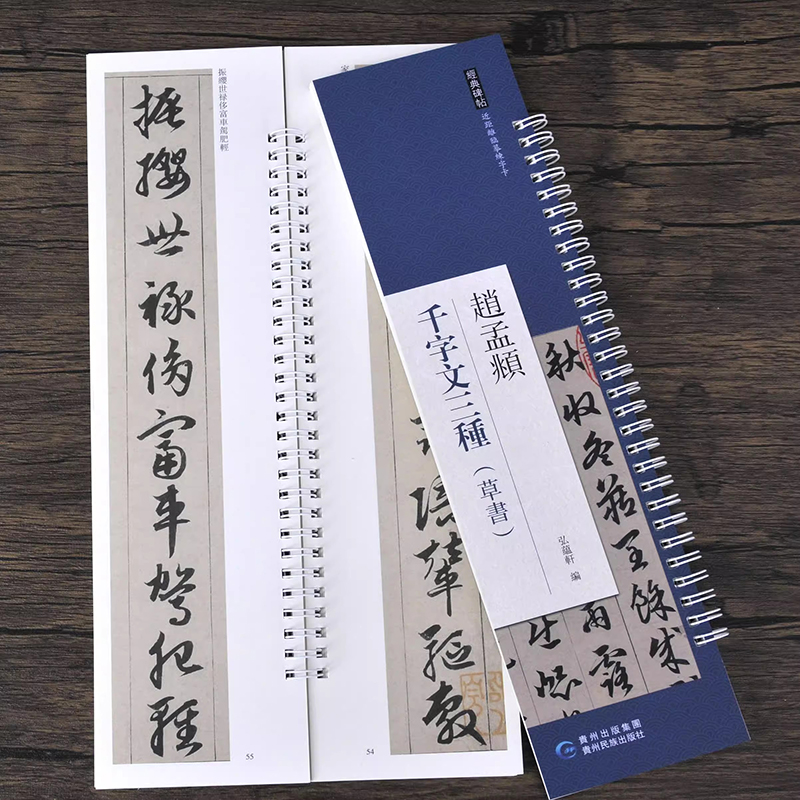 振纓世禄侈富車駕肥輕
振纓世祿侈富車駕肥輕
55
家
陪輦驅轂
54
經典碑帖
近距離臨摹練字卡
趙孟頫
千字文三種（草書）
弘蘊軒 編
秋收冬藏閏餘成
雨露
貴州出版集團
貴州民族出版社